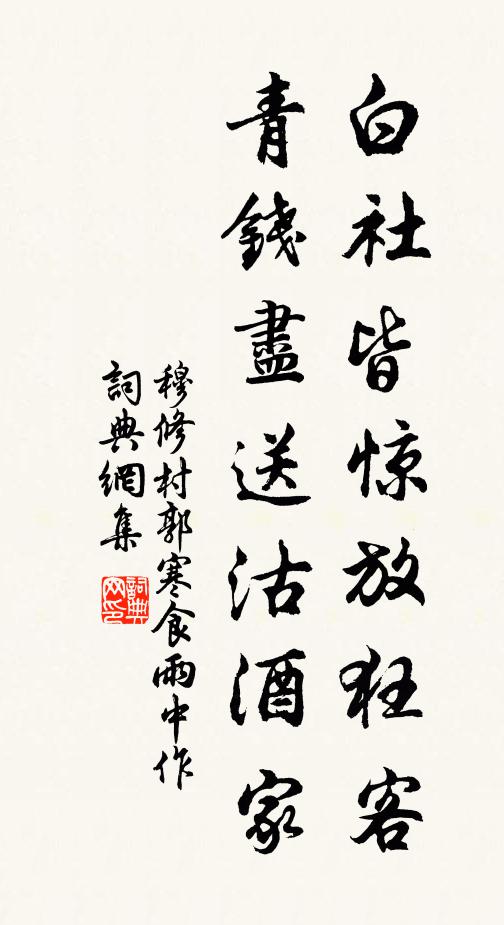 白社皆惊放狂客
青錢盡送沽酒家
穆修村郭寒食雨中作
詞典網集
詞典网印